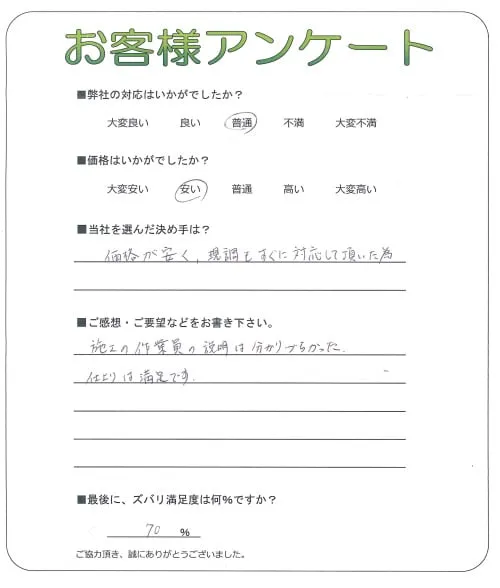 お客様アンケート
■弊社の対応はいかがでしたか？
大変良い 良い 普通 不満 大変不満
■価格はいかがでしたか？
大変安い 安い 普通 高い 大変高い
■当社を選んだ決め手は？
価格が安く、現調もすぐに対応して頂いた為
■ご感想・ご要望などをお書き下さい。
施工の作業員の説明は分かりづらかった.
仕上りは満足です.
■最後に、ズバリ満足度は何%ですか？
70 %
ご協力頂き、誠にありがとうございました。